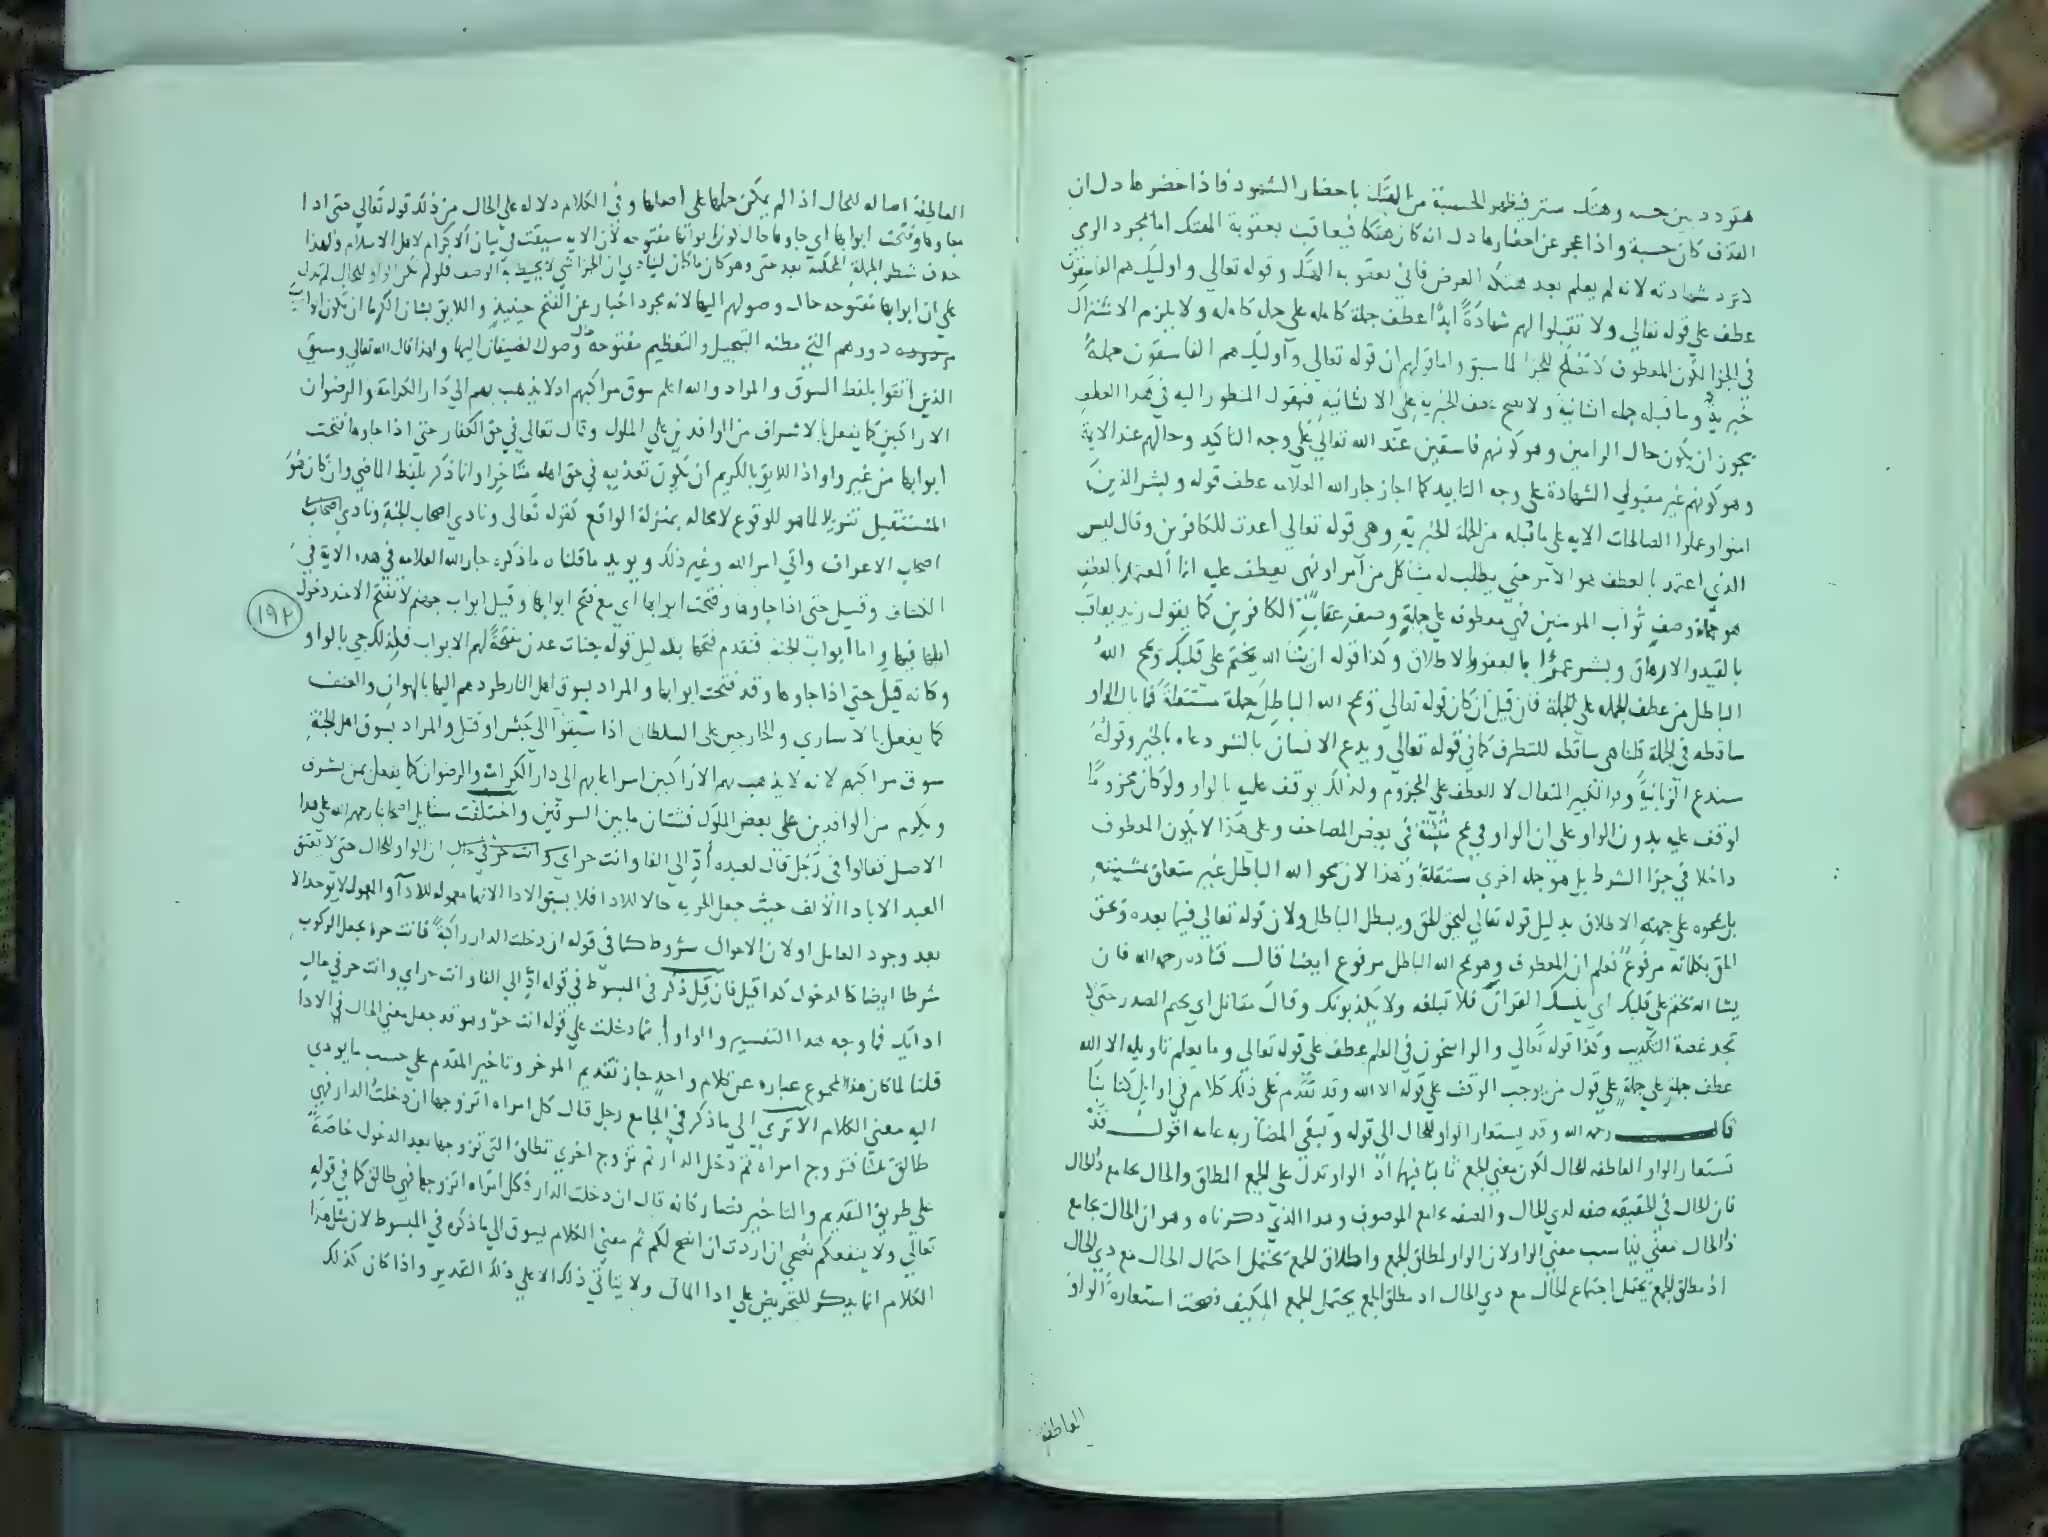 متردد بين حسبة وهتك ستر فيظهر الحسبة من الهتك باحضار الشهود فاذا حضروا دل ان
القذف كان حسبة واذا عجز عن احضارها دل انه كان هتكا فيعاقب بعقوبة الهتك اما مجرد الرمي
لا ترد شهادته لانه لم يعلم بعد هتكه العرض فاني يعقوبه الهتك وقوله تعالي واوليك هم الفاسقون
عطف علي قوله تعالي ولا تقبلوا لهم شهادةً ابداً عطف جملة كامله علي جمله كامله ولا يلزم الاشتراك
في الجزا لكون المعطوف لا تصلح للجزا لما سبق واما قولهم ان قوله تعالي واوليك هم الفاسقون جملةٌ
خبريةٌ وما قبله جمله انشائية ولا يصح عطف الخبرية علي الانشائية فنقول المنظور اليه في هذا العطف
يجوز ان يكون حال الرامين وهو كونهم فاسقين عند الله تعالي علي وجه التاكيد وحالهم عند الايمة
وهو كونهم غير مقبولي الشهادة علي وجه التابيد كما اجاز جار الله العلامه عطف قوله وبشر الذين
امنوا وعملوا الصالحات الايه علي ما قبله من الجملة الخبرية وهي قوله تعالي اعدت للكافرين وقال ليس
الذي اعتمد بالعطف هو الامر حتي يطلب له مشاكل من امر او نهي يعطف عليه انما المعتمد بالعطف
هو جملة وصف ثواب المومنين فهي معطوفه علي جملة وصف عقاب الكافرين كما يقول زيد يعاقب
بالقيد والارهاق وبشر عمرًا بالعفو والاطلاق وكذا قوله ان يشا الله يختم علي قلبك ويمح الله
الباطل من عطف الجمله علي الجملة فان قيل ان كان قوله تعالي ويمح الله الباطل جملة مستقلة فما بال الواو
ساقطه في الجملة قلنا هي ساقطه للتطرف كما في قوله تعالي ويدع الانسان بالشر دعاه بالخير وقولهُ
سندع الزبانية وهو الكبير المتعال لا للعطف علي المجزوم ولذلك يوقف عليه بالواو ولو كان مجزومًا
لوقف عليه بدون الواو علي ان الواو في يمح مثبتة في بعض المصاحف وعلي هذا لا يكون المعطوف
داخلا في جزا الشرط بل هو جمله اخري مستقلة وهذا لان محو الله الباطل غير متعلق بمشيته
بل يمحوه علي جهة الاطلاق بدليل قوله تعالي ليحق الحق ويبطل الباطل ولان قوله تعالي فيما بعده ويحق
الحق بكلماته مرفوع فعلم ان المعطوف وهو يمح الله الباطل مرفوع ايضا قال قتاده رحمه الله فان
يشا الله يختم علي قلبك اي ينسك القران فلا تبلغه ولا يكذبونك وقال مقاتل اي يختم الصدر حتي لا
تجد غصة التكذيب وكذا قوله تعالي والراسخون في العلم عطف علي قوله تعالي وما يعلم تاويله الا الله
عطف جملة علي جملة علي قول من يوجب الوقف علي قوله الا الله وقد تقدم علي ذلك كلام في اوايل كتابنا
قال رحمه الله وقد يستعار الواو للحال الي قوله وتبقي المضاربه عامه اقول قد
تستعار الواو العاطفه للحال لكون معني الجمع ثابتا فيها اذ الواو تدل علي الجمع المطلق والحال يجامع ذا الحال
فان الحال في الحقيقه صفه لذي الحال والصفه تجامع الموصوف وهذا الذي ذكرناه وهو ان الحال يجامع
ذا الحال معني يناسب معني الواو لان الواو لمطلق الجمع واطلاق الجمع يحتمل احتمال الحال مع ذي الحال
اذ مطلق الجمع يحتمل اجتماع الحال مع ذي الحال اذ مطلق الجمع يحتمل الجمع المكيف فصحت استعارة الواو
العاطفة
العاطفة اصاله للحال اذا لم يمكن حملها علي اصلها وفي الكلام دلاله علي الحال من ذلك قوله تعالي حتي اذا
جاوها وفتحت ابوابها اي جاوها حال كون ابوابها مفتوحه لان الايه سيقت في بيان الاكرام لاهل الاسلام ولهذا
حذف شطر الجملة المحكية بعد حتي وهو كان ما كان لينادي ان الجزا شي لا يحيط به الوصف فلو لم تكن الواو للحال لم تدل
علي ان ابوابها مفتوحه حال وصولهم اليها لانه مجرد اخبار عن الفتح حينيذ واللايق بشان الكرما ان تكون ابواب
دورهم التي مظنه التبجيل والتعظيم مفتوحة حال وصول الضيفان اليها ولهذا قال الله تعالي وسيق
الذين اتقوا بلفظ السوق والمراد والله اعلم سوق مراكبهم اذ لا يذهب بهم الي دار الكرامة والرضوان
الا راكبين كما يفعل بالاشراف من الوافدين علي الملوك وقال تعالي في حق الكفار حتي اذا جاوها فتحت
ابوابها من غير واو اذ اللايق بالكريم ان يكون تعذيبه في حق اهله متاخرا وانما ذكر بلفظ الماضي وان كان هو
المستقبل تنزيلا لما هو للوقوع لا محاله بمنزلة الواقع كقوله تعالي ونادي اصحاب الجنة ونادي اصحاب
اصحاب الاعراف واتي امر الله وغير ذلك ويويد ما قلناه ما ذكره جار الله العلامه في هذه الاية في
الكشاف وقيل حتي اذا جاوها وفتحت ابوابها اي مع فتح ابوابها وقيل ابواب جهنم لا تفتح الا عند دخول
١٩٢
اهلها فيها واما ابواب الجنة فتقدم فتحها بدليل قوله جنات عدن مفتحةً لهم الابواب فلذلك جي بالواو
وكانه قيل حتي اذا جاوها وقد فتحت ابوابها والمراد بسوق اهل النار طردهم اليها بالهوان والعنف
كما يفعل بالاساري والخارجين علي السلطان اذا سيقوا الي حبس او قتل والمراد بسوق اهل الجنة
سوق مراكبهم لانه لا يذهب بهم الا راكبين اسراعا بهم الي دار الكرامة والرضوان كما يفعل بمن يشرف
ويكرم من الوافدين علي بعض الملوك فشتان ما بين السوقين واختلفت مسايل اصحابنا رحمهم الله علي هذا
الاصل فقالوا في رجل قال لعبده ادِّ الي الفا وانت حر اي وانت حر في حال ان الواو للحال حتي لا يعتق
العبد الا بادا الالف حيث جعل الحريه حالا للادا فلا يسبق الادا لانها معموله للادآ والمعمول لا يوجد الا
بعد وجود العامل او لان الاحوال شروط كما في قوله ان دخلت الدار راكبةً فانت حرة يجعل الركوب
شرطا ايضا كالدخول كذا قيل فان قيل ذكر في المبسوط في قوله ادِّ الي الفا وانت حر اي وانت حر في حال
ادايك فما وجه هذا التفسير والواو انما دخلت علي قوله انت حرّ وهو قد جعل معني الحال في الادا
قلنا لما كان هذا المجموع عباره عن كلام واحد جاز تقديم الموخر وتاخير المقدم علي حسب ما يودي
اليه معني الكلام الا تري الي ما ذكر في الجامع رجل قال كل امراه اتزوجها ان دخلت الدار فهي
طالق ثلثا فتزوج امراة ثم دخل الدار ثم تزوج اخري تطلق التي تزوجها بعد الدخول خاصّةً
علي طريق التقديم والتاخير فصار كانه قال ان دخلت الدار فكل امراه اتزوجها فهي طالق كما في قوله
تعالي ولا ينفعكم نصحي ان اردت ان انصح لكم ثم معني الكلام يسوق الي ما ذكره في المبسوط لان مثل هذا
الكلام انما يذكر للتحريض علي ادا المال ولا يتاتي ذلك الا علي ذلك التقدير واذا كان كذلك